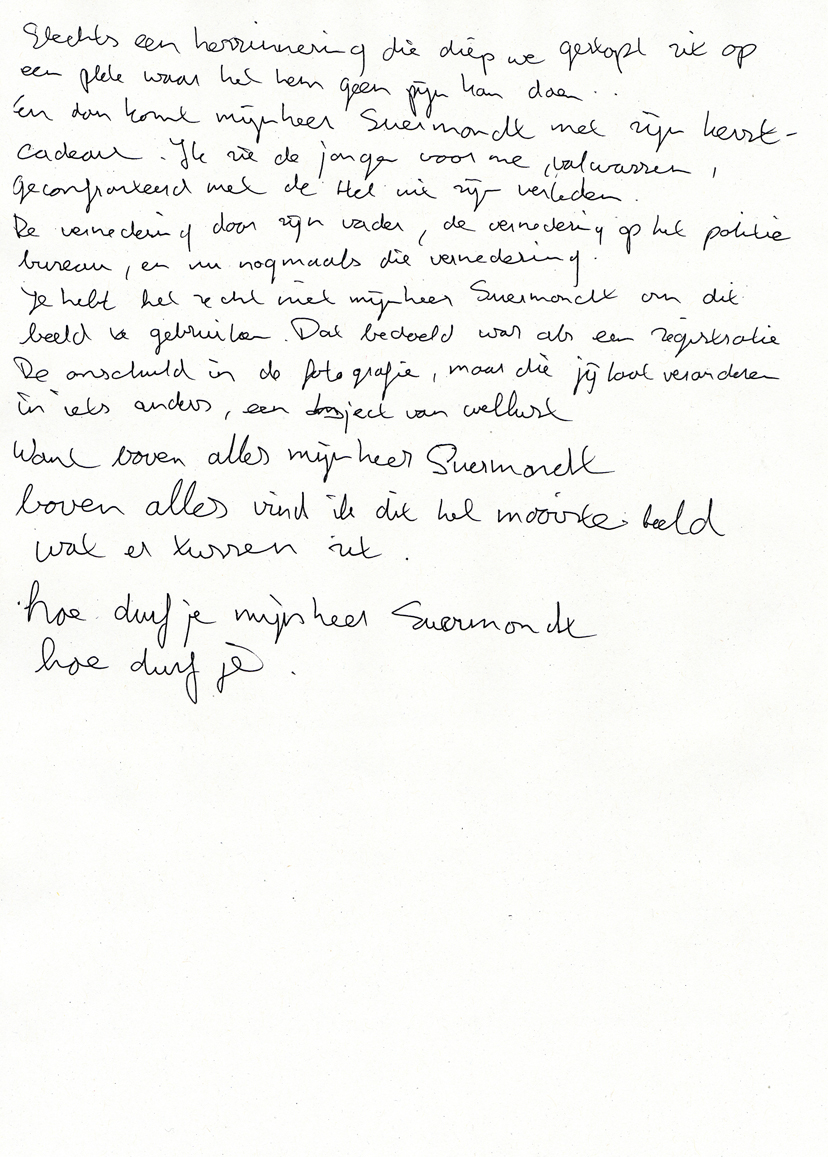 Slechts een herrinnering die diep weggestopt zit op
een plek waar het hem geen pijn kan doen..
En dan komt mijnheer Suermondt met zijn kerst-
cadeau. Ik zie de jongen voor me, volwassen,
geconfronteerd met de Hel uit zijn verleden.
De vernedering door zijn vader, de vernedering op het politie
bureau, en nu nogmaals die vernedering.
Je hebt het recht niet mijnheer Suermondt om dit
beeld te gebruiken. Dat bedoeld was als een registratie
De onschuld in de fotografie, maar die jij laat veranderen
in iets anders, een van wellust
Want boven alles mijnheer Suermondt
boven alles vind ik dit het mooiste beeld
wat er tussen zit.
hoe durf je mijnheer Suermondt
hoe durf je.